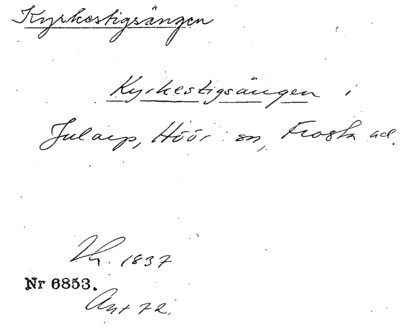 Kyrkestigsängen
Kyrkestigsängen i
Jularp, Höör sn, Frosta hd.
Th. 1837
Nr 6853.
Ant 72.